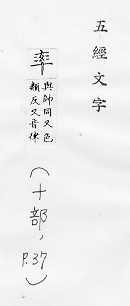 五經文字
率
與帥同又色
類反又音律
（十部，P.37）